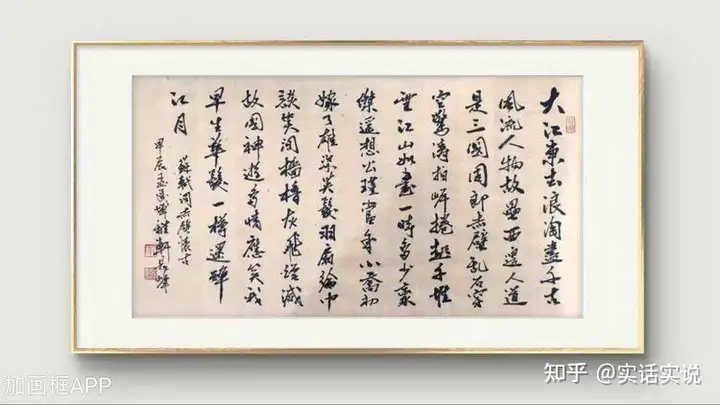 大江東去浪淘盡千古
風流人物故壘西邊人道
是三國周郎赤壁亂石穿
空驚濤拍岸捲起千堆
雪江山如畫一時多少豪
傑遥想公瑾當年小喬初
嫁了雄姿英發羽扇綸巾
談笑间檣櫓灰飛煙滅
故國神遊多情應笑我
早生華髮一樽還酹
江月
蘇軾词赤壁懷古
甲辰孟夏
加画框APP
知乎 @实话实说